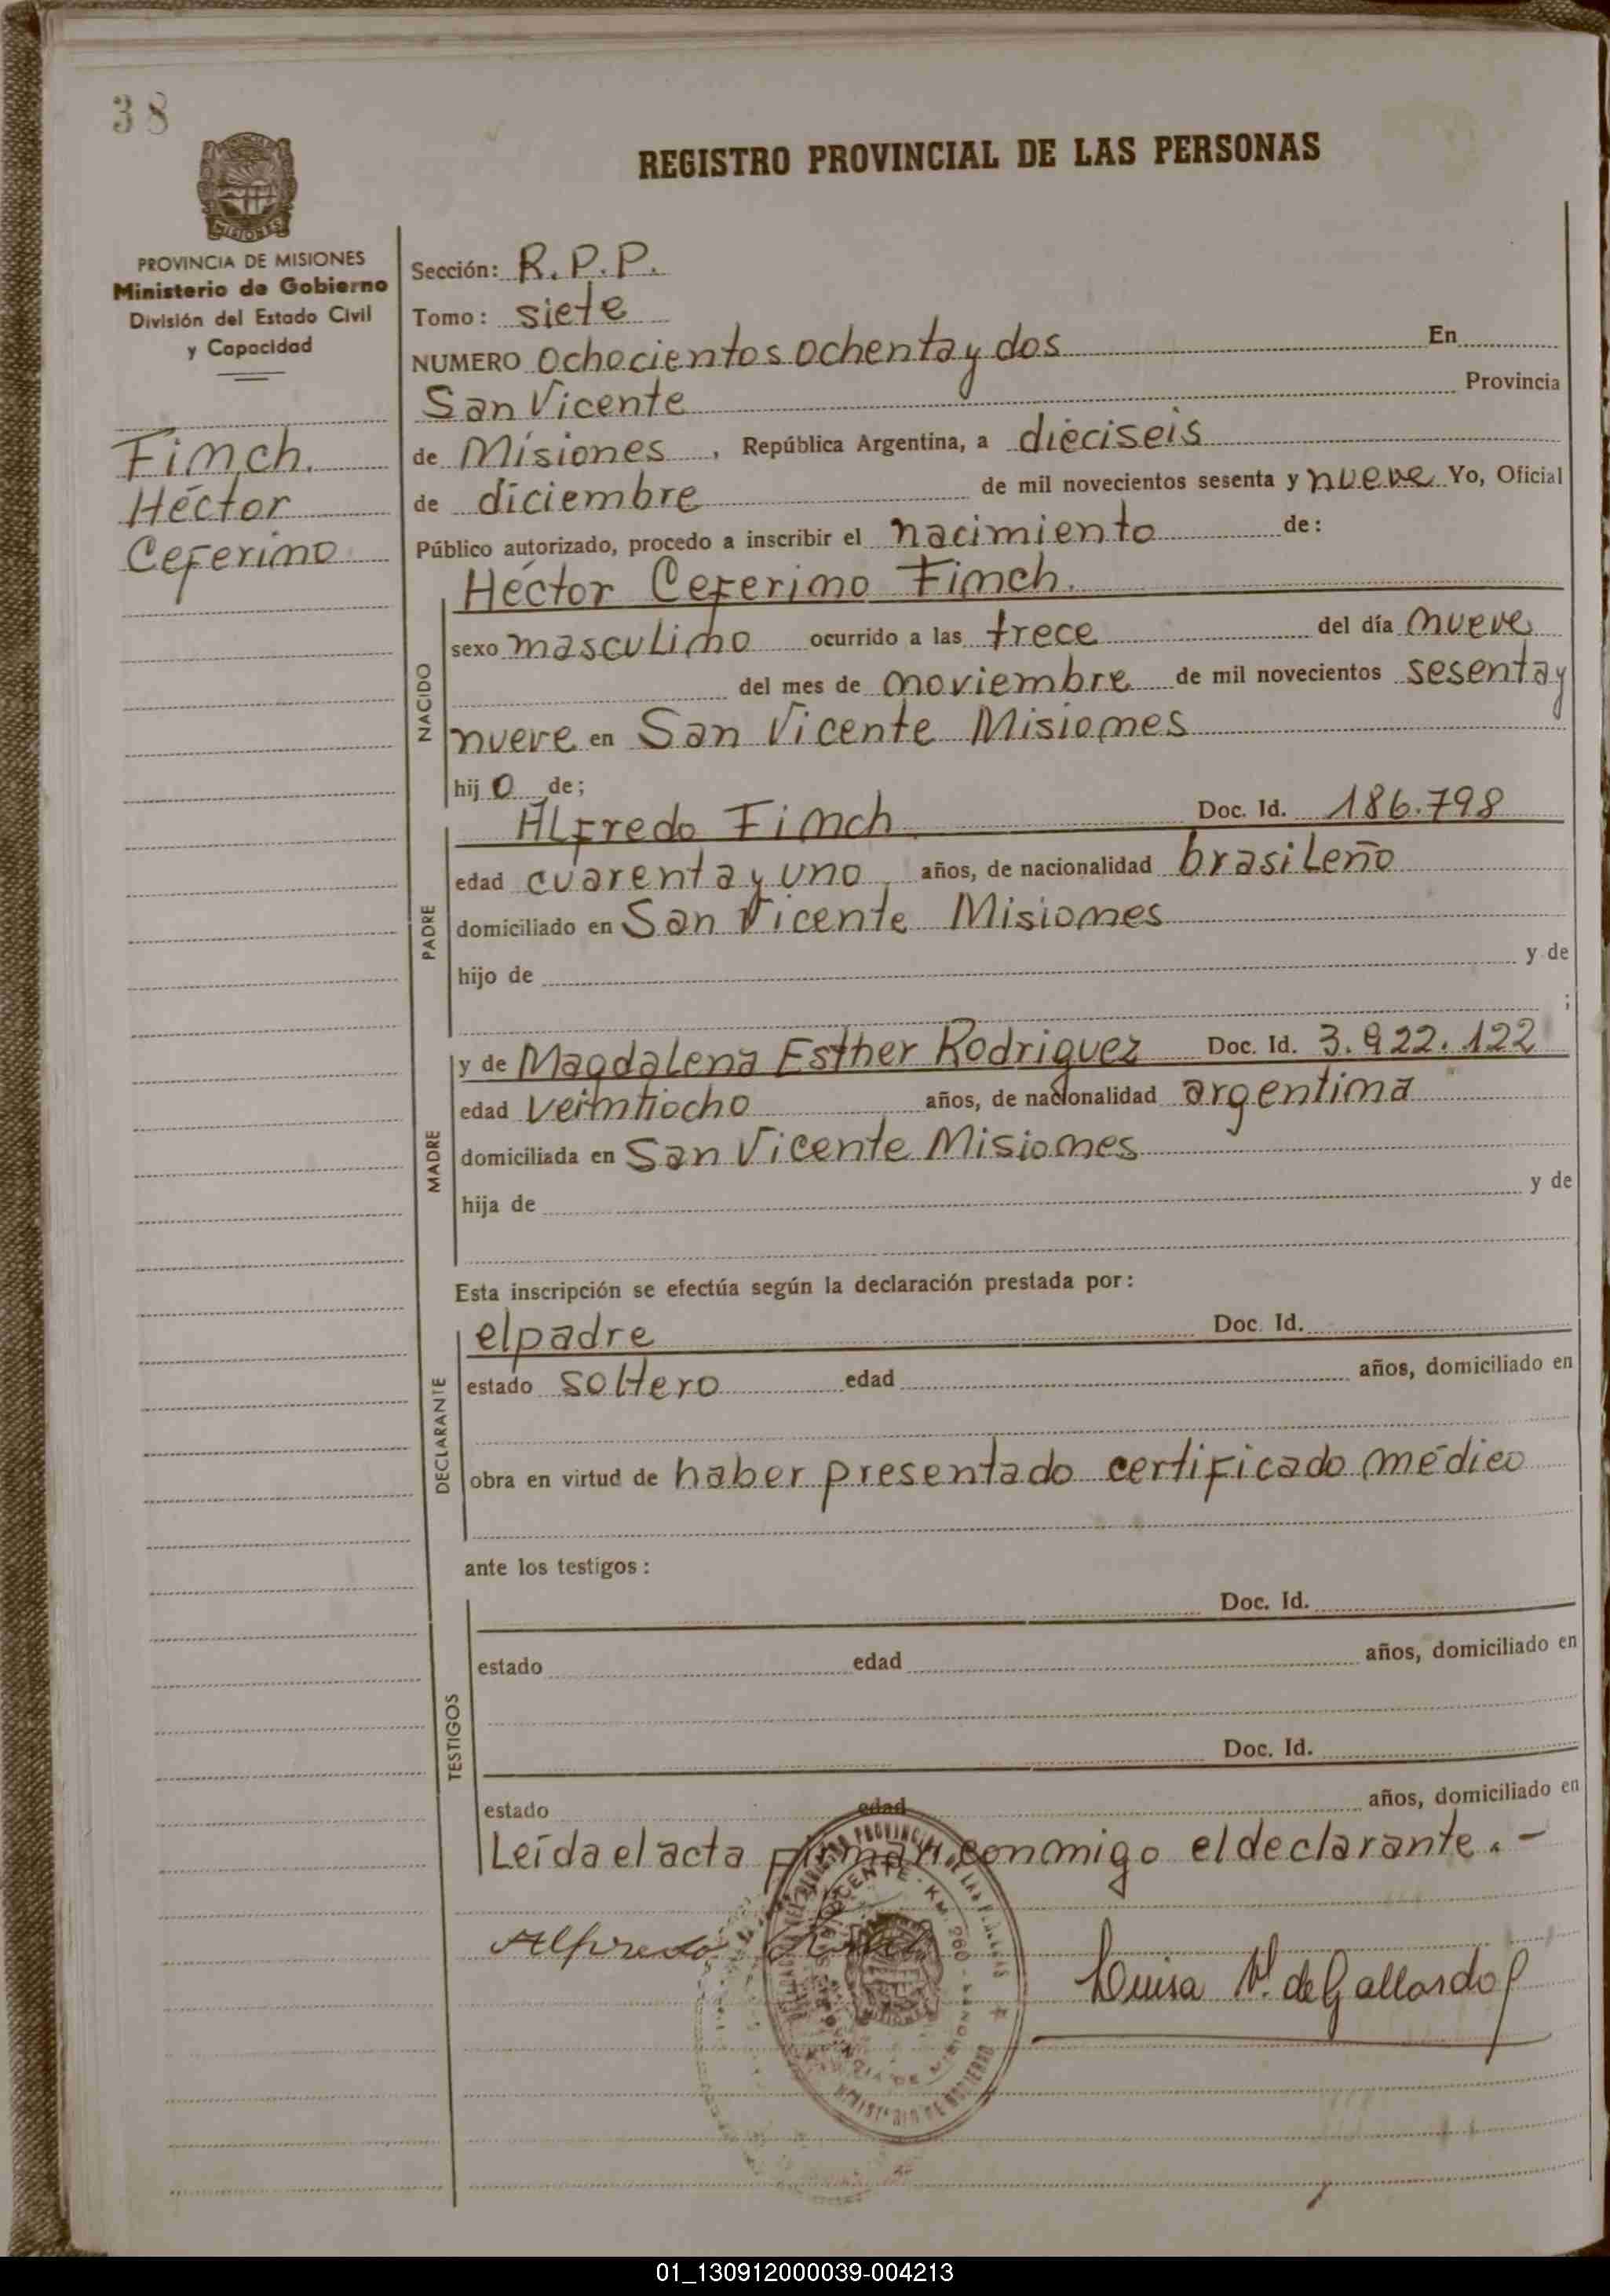 38
REGISTRO PROVINCIAL DE LAS PERSONAS
MISIONES
PROVINCIA DE MISIONES
Ministerio de Gobierno
División del Estado Civil
y Capacidad
Finch.
Héctor
Ceferino
Sección: R.P.P.
Tomo: siete
NUMERO ochocientos ochenta y dos En
San Vicente Provincia
de Misiones, República Argentina, a dieciseis
de diciembre de mil novecientos sesenta y nueve Yo, Oficial
Público autorizado, procedo a inscribir el nacimiento de:
Héctor Ceferino Finch.
NACIDO
sexo masculino ocurrido a las trece del día nueve
del mes de noviembre de mil novecientos sesenta y
nueve en San Vicente Misiones
hijo de;
PADRE
Alfredo Finch Doc. Id. 186.798
edad cuarenta y uno años, de nacionalidad brasileño
domiciliado en San Vicente Misiones
hijo de y de
;
MADRE
y de Magdalena Esther Rodriguez Doc. Id. 3.922.122
edad veintiocho años, de nacionalidad argentina
domiciliada en San Vicente Misiones
hija de y de
Esta inscripción se efectúa según la declaración prestada por:
DECLARANTE
el padre Doc. Id.
estado soltero edad años, domiciliado en
obra en virtud de haber presentado certificado médico
ante los testigos:
TESTIGOS
Doc. Id.
estado edad años, domiciliado en
Doc. Id.
estado edad años, domiciliado en
Leída el acta firman conmigo el declarante.-
Alfredo
Luisa de Gallardo
MINISTERIO DE GOBIERNO
01_130912000039-004213